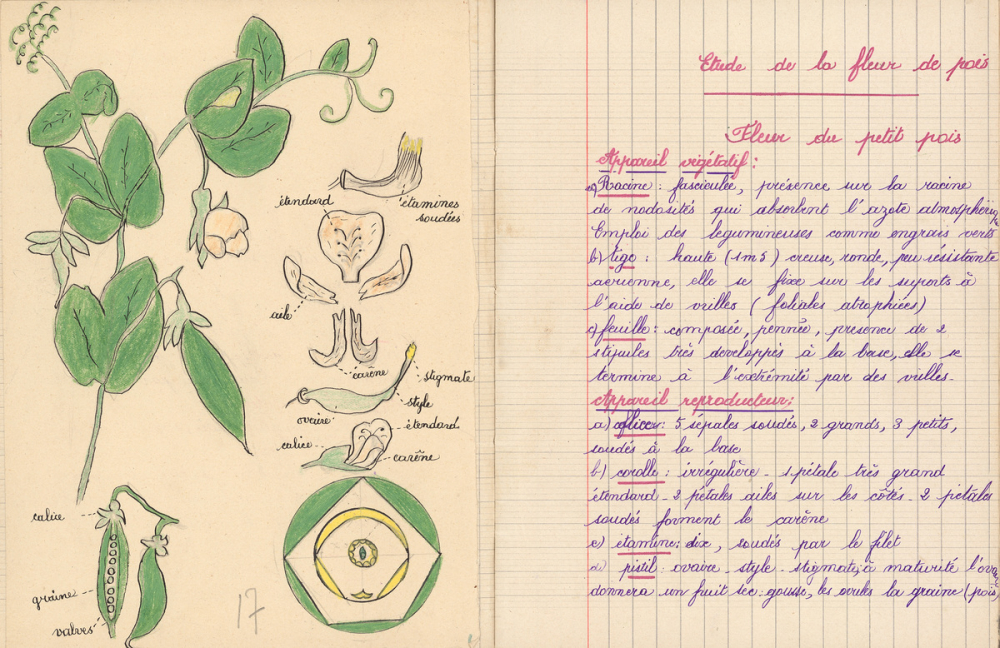 étendard
étamines
soudées
aile
carène
stigmate
style
ovaire
étendard
calice
carêne
calice
graine
valves
17
Etude de la fleur de pois
Fleur du petit pois
Appareil végétatif :
a) Racine : fasciculée, présence sur la racine
de nodosités qui absorbent l'azote atmosphéri
Emploi des legumineuses comme engrais verts
b) tige : haute (1m5) creuse, ronde, peu résistante
aérienne, elle se fixe sur les suports à
l'aide de vrilles (folioles atrophiées)
c) feuille : composée, pennée, présence de 2
stipules très developpés à la base, elle se
termine à l'extrémité par des vrilles.
Appareil reproducteur :
a) : 5 sépales soudés, 2 grands, 3 petits,
soudés à la base
b) corolle : irrégulière - 1 pétale très grand
étendard - 2 pétales ailes sur les côtés - 2 pétales
soudés forment le carène
c) étamine : dix, soudés par le filet
d) pistil : ovaire - style - stigmate, à maturité l'ova
donnera un fruit sec : gousse, les ovules la graine (pois)